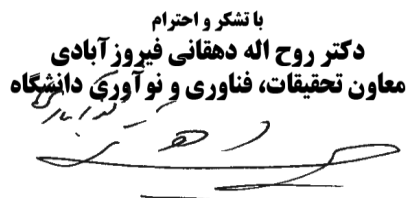 با تشکر و احترام
دکتر روح اله دهقانی فیروزآبادی
معاون تحقیقات، فناوری و نوآوری دانشگاه